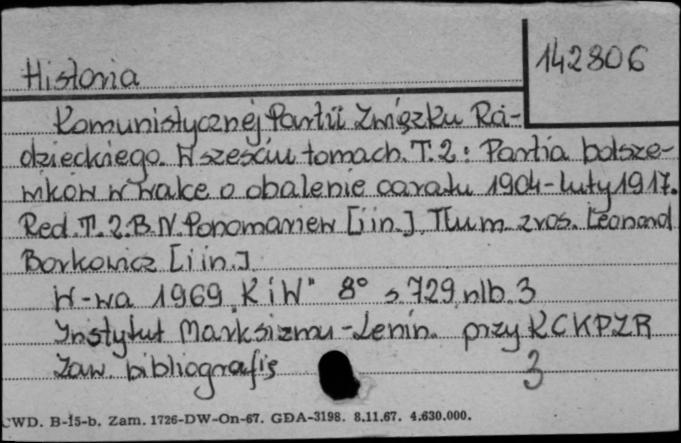 142806
Historia
Komunistycznej Partii Związku Ra-
dzieckiego. W sześciu tomach. T.2: Partia bolsze-
wików w walce o obalenie caratu 1904-luty 1917.
Red. T.2. B.N. Ponomariew [i in.]. Tłum. z ros. Leonard
Borkowicz [i in.].
W-wa 1969 "KiW" 8° s. 729, nlb. 3
Instytut Marksizmu-Lenin. przy KCKPZR
Zaw. bibliografię
3
CWD. B-15-b. Zam. 1726-DW-On-67. GDA-3198. 8.11.67. 4.630.000.